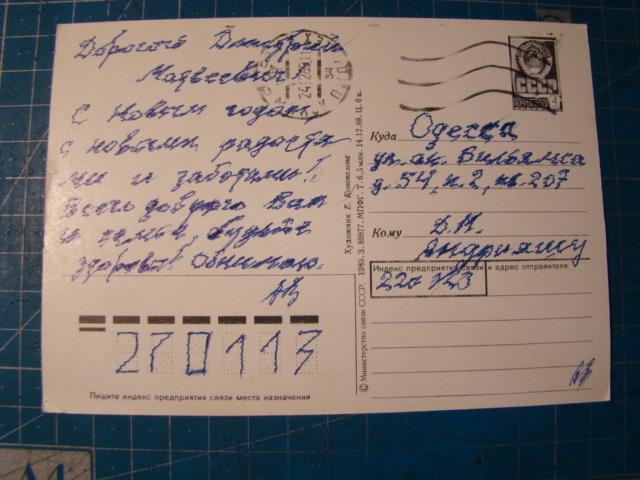 Дорогой Дмитрий
Матвеевич!
С Новым годом
с новыми радостя
ми и заботами!
Всего доброго Вам
и семье, будьте
здоровы! Обнимаю.
АВ
270113
Пишите индекс предприятия связи места назначения
© Министерство связи СССР. 1989. З. 89877. МПФГ. Т. 6,5 млн. 14.12.88. Ц. 6 к.
Художник Е. Коновалова
СССР
ПОЧТА
4
Куда Одесса
ул. ак. Вильямса
д. 54, к. 2, кв. 207
Кому Д. М.
Андрияшу
Индекс предприятия связи и адрес отправителя
220123
АВ